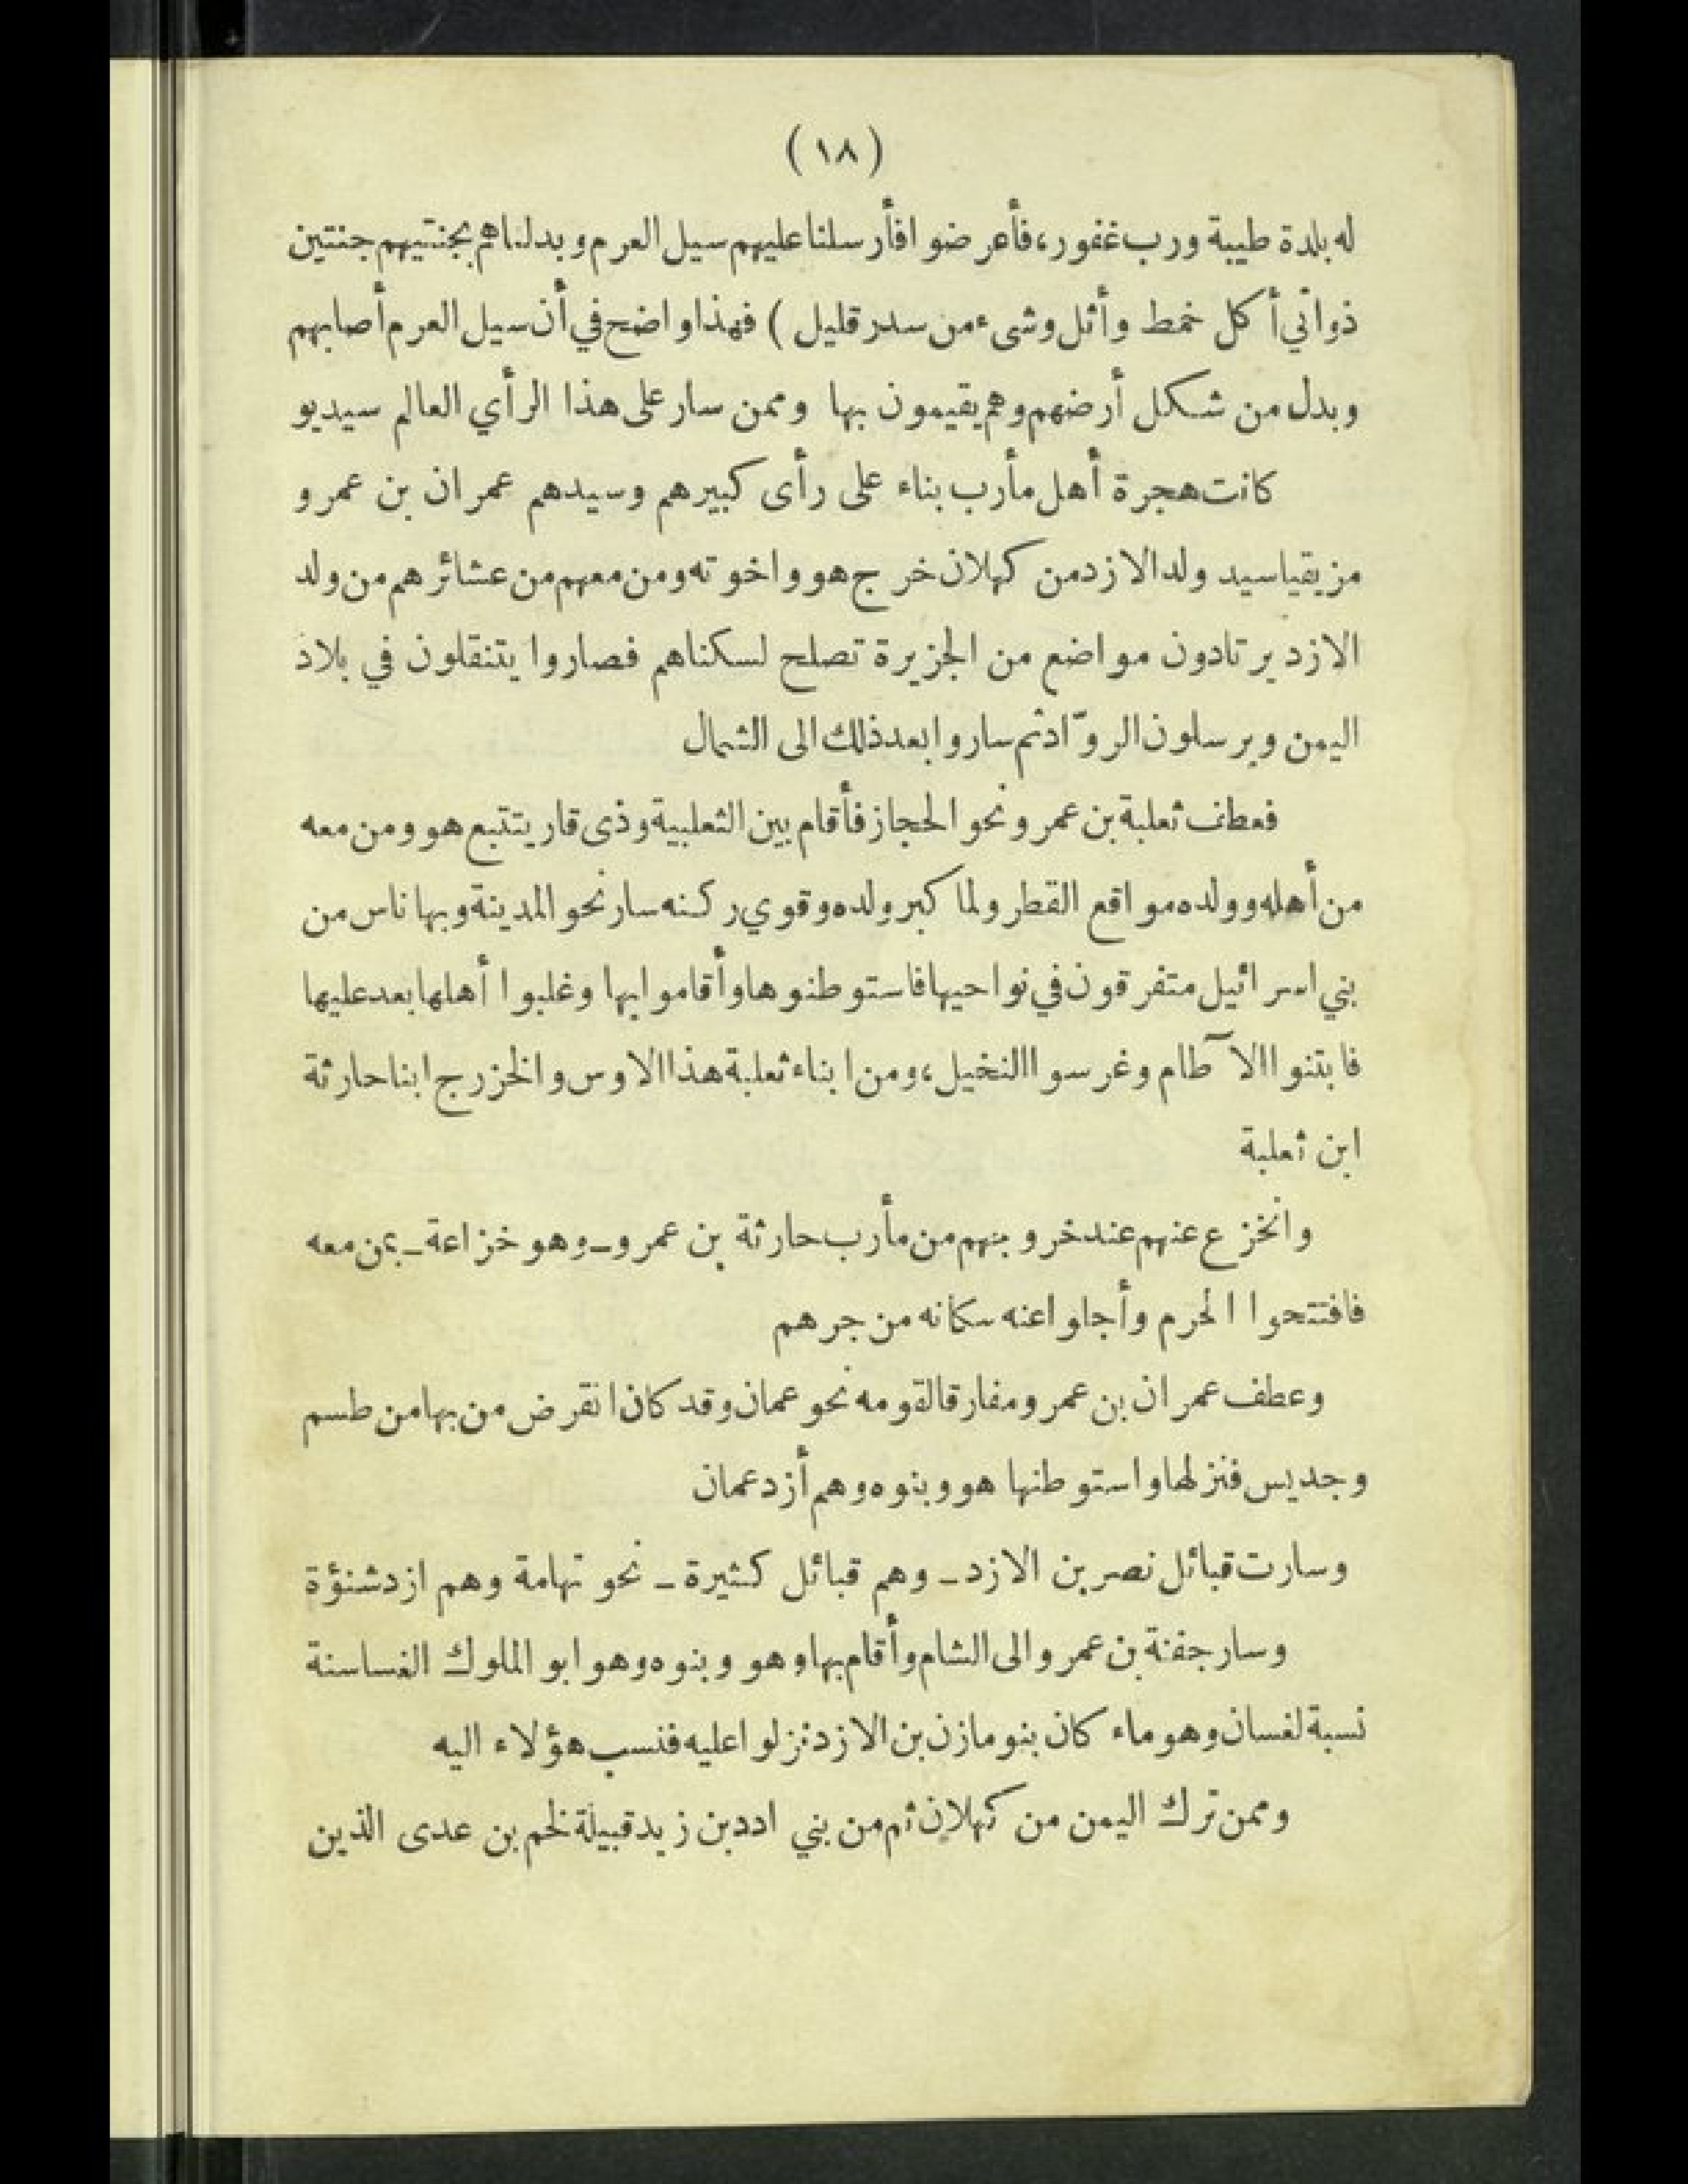 (١٨)
له بلدة طيبة ورب غفور، فأعرضوا فأرسلنا عليهم سيل العرم وبدلناهم بجنتيهم جنتين
ذواتي أكل خمط وأثل وشىء من سدر قليل ) فهذا واضح في أن سيل العرم أصابهم
وبدل من شكل أرضهم وهم يقيمون بها وممن سار على هذا الرأي العالم سيديو
كانت هجرة أهل مأرب بناء على رأى كبيرهم وسيدهم عمران بن عمرو
مزيقيا سيد ولد الازد من كهلان خرج هو واخوته ومن معهم من عشائرهم من ولد
الازد يرتادون مواضع من الجزيرة تصلح لسكناهم فصاروا يتنقلون في بلاد
اليمن ويرسلون الروّاد ثم ساروا بعد ذلك الى الشمال
فعطف ثعلبة بن عمرو نحو الحجاز فأقام بين الثعلبية وذى قار يتتبع هو ومن معه
من أهله وولده مواقع القطر ولما كبر ولده وقوي ركنه سار نحو المدينة وبها ناس من
بني اسرائيل متفرقون في نواحيها فاستوطنوها وأقاموا بها وغلبوا أهلها بعد عليها
فابتنوا الآطام وغرسوا النخيل، ومن ابناء ثعلبة هذا الاوس والخزرج ابنا حارثة
ابن ثعلبة
وانخزع عنهم عند خروجهم من مأرب حارثة بن عمرو ــ وهو خزاعة ــ بمن معه
فافتتحوا الحرم وأجلوا عنه سكانه من جرهم
وعطف عمران بن عمرو مفارقا لقومه نحو عمان وقد كان انقرض من بها من طسم
وجديس فنزلها واستوطنها هو وبنوه وهم أزد عمان
وسارت قبائل نصر بن الازد ــ وهم قبائل كثيرة ــ نحو تهامة وهم ازد شنؤة
وسار جفنة بن عمرو الى الشام وأقام بها وهو وبنوه وهو ابو الملوك الغساسنة
نسبة لغسان وهو ماء كان بنو مازن بن الازد نزلوا عليه فنسب هؤلاء اليه
وممن ترك اليمن من كهلان ثم من بني ادد بن زيد قبيلة لخم بن عدى الذين